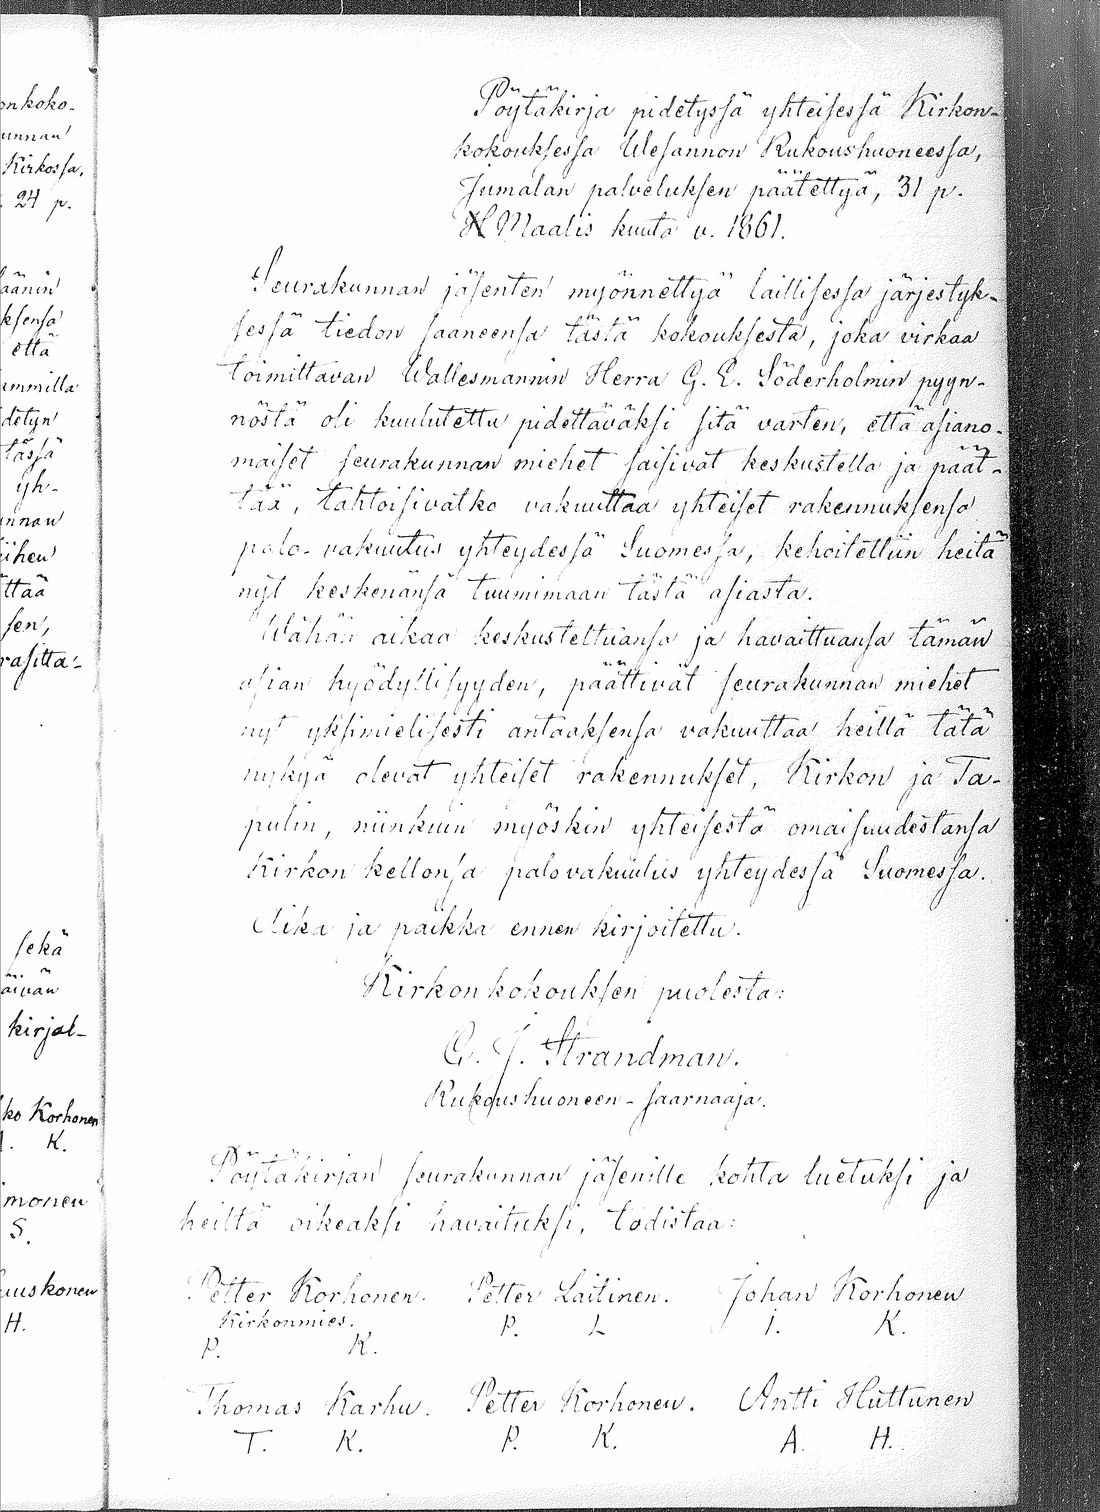 onkoko-
unnan
Kirkossa,
24 p.
läänin
ksensa
että
ammilla
detyn
tässä
yh-
unnan
iihen
ttää
sen,
rasitta-
sekä
äivän
kirjal-
ko Korhonen
K.
imonen
S.
uuskonen
H.
Pöytäkirja pidetyssä yhteisessä Kirkon-
kokouksessa Wesannon Rukoushuoneessa,
Jumalan palveluksen päätettyä, 31 p.
Maalis kuuta v. 1861.
Seurakunnan jäsenten myönnettyä laillisessa järjestyk-
sessä tiedon saaneensa tästä kokouksesta, joka virkaa
toimittavan Wallesmannin Herra G. E. Söderholmin pyyn-
nöstä oli kuulutettu pidettäväksi sitä varten, että asiano-
maiset seurakunnan miehet saisivat keskustella ja päät-
tää, tahtoisivatko vakuuttaa yhteiset rakennuksensa
palo-vakuutus yhteydessä Suomessa, kehoitettiin heitä
nyt keskenänsä tuumimaan tästä asiasta.
Wähän aikaa keskusteltuansa ja havaittuansa tämän
asian hyödyllisyyden, päättivät seurakunnan miehet
nyt yksimielisesti antaaksensa vakuuttaa heillä tätä
nykyä olevat yhteiset rakennukset, Kirkon ja Ta-
pulin, niinkuin myöskin yhteisestä omaisuudestansa
Kirkon kellonsa palovakuutus yhteydessä Suomessa.
Aika ja paikka ennen kirjoitettu.
Kirkonkokouksen puolesta:
G. J. Strandman.
Rukoushuoneen-saarnaaja.
Pöytäkirjan seurakunnan jäsenille kohta luetuksi ja
heiltä oikeaksi havaituksi, todistaa:
Petter Korhonen. Petter Laitinen. Johan Korhonen
Kirkonmies. P. L I. K.
P. K.
Thomas Karhu. Petter Korhonen. Antti Huttunen
T. K. P. K. A. H.